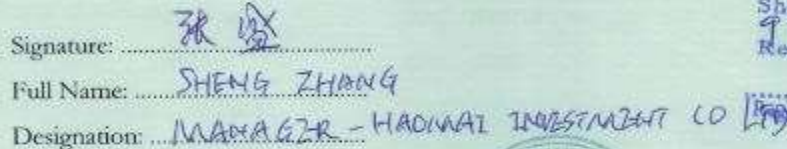 Signature: 张盛
Full Name: SHENG ZHANG
Designation: MANAGER - HAOMAI INVESTMENT CO LTD
Sh
Re